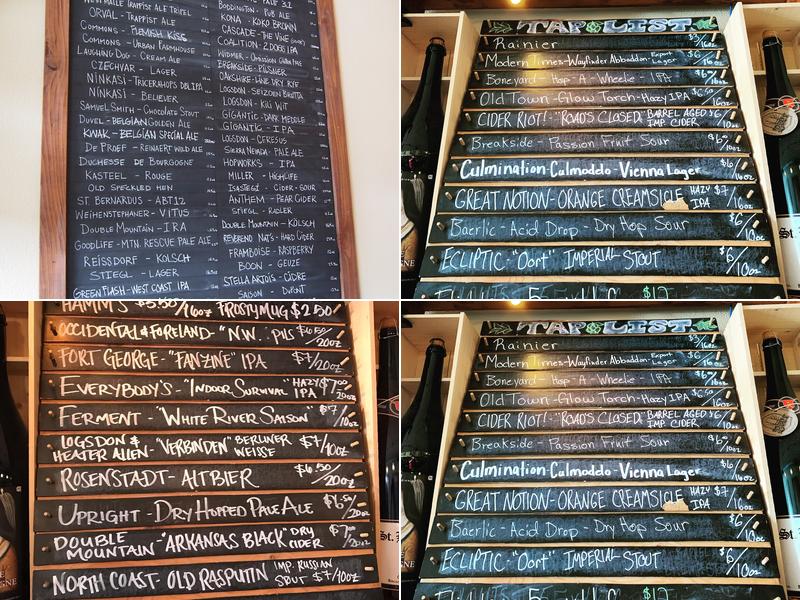 ORVAL - TRAPPIST ALE
COMMONS - FLEMISH KISS
COMMONS - URBAN FARMHOUSE
LAUGHING DOG - CREAM ALE
CZECHVAR - LAGER
NINKASI - TRICERAHOPS DBL IPA
NINKASI - BELIEVER
SAMUEL SMITH - CHOCOLATE STOUT
DUVEL - BELGIAN GOLDEN ALE
KWAK - BELGIAN SPECIAL ALE
DE PROEF - REINAERT WILD ALE
DUCHESSE DE BOURGOGNE
KASTEEL - ROUGE
OLD SPECKLED HEN
ST. BERNARDUS - ABT 12
WEIHENSTEPHANER - VITUS
DOUBLE MOUNTAIN - IRA
GOODLIFE - MTN. RESCUE PALE ALE
REISSDORF - KOLSCH
STIEGL - LAGER
GREEN FLASH - WEST COAST IPA
BODDINGTON - PUB ALE
KONA - KOKO BROWN
CASCADE - THE VINE
COALITION - 2 DOGS IPA
BREAKSIDE - PILSNER
OAKSHIRE - LINE DRY RYE
LOGSDON - SEIZOEN BRETTA
LOGSDON - KILI WIT
GIGANTIC - DARK MEDDLE
GIGANTIC - IPA
LOGSDON - CERESUS
SIERRA NEVADA - PALE ALE
HOPWORKS - IPA
MILLER - HIGHLIFE
ISASTEGI - CIDER - SOUR
ANTHEM - PEAR CIDER
STIEGL - RADLER
DOUBLE MOUNTAIN - KÖLSCH
REVEREND NAT'S - HARD CIDER
FRAMBOISE - RASPBERRY
BOON - GEUZE
STELLA ARTOIS - CIDRE
SAISON - DUPONT
TAP LIST
Rainier $3/16oz
Modern Times - Wayfinder Abbaddon - Export Lager $6/16oz
Boneyard - Hop-A-Wheelie - IPA $6/16oz
Old Town - Glow Torch - Hazy IPA $6.50/16oz
CIDER RIOT! - "ROADS CLOSED" BARREL AGED IMP. CIDER $6/10oz
Breakside - Passion Fruit Sour $6/10oz
Culmination Calmoddo - Vienna Lager $6/16oz
GREAT NOTION - ORANGE CREAMSICLE HAZY IPA $7/16oz
Baerlic - Acid Drop - Dry Hop Sour $6/10oz
ECLIPTIC - "Oort" IMPERIAL STOUT $6/10oz
HAMM'S $3.50/16oz FROSTY MUG $2.50
OCCIDENTAL & FORELAND - "N.W. PILS $6.50/20oz
FORT GEORGE - "FANZINE" IPA $7/20oz
EVERYBODY'S - "INDOOR SURVIVAL" HAZY IPA $7.00/20oz
FERMENT - "WHITE RIVER SAISON" $7/10oz
LOGSDON & HEATER ALLEN - "VERBINDEN" BERLINER WEISSE $7/10oz
ROSENSTADT - ALTBIER $6.50/20oz
UPRIGHT - DRY HOPPED PALE ALE
DOUBLE MOUNTAIN - "ARKANSAS BLACK" DRY CIDER
NORTH COAST - OLD RASPUTIN IMP. RUSSIAN STOUT $7/10oz
TAP LIST
Rainier $3/16oz
Modern Times - Wayfinder Abbaddon - Export Lager $6/16oz
Boneyard - Hop-A-Wheelie - IPA $6/16oz
Old Town - Glow Torch - Hazy IPA $6.50/16oz
CIDER RIOT! - "ROADS CLOSED" BARREL AGED IMP. CIDER $6/10oz
Breakside - Passion Fruit Sour $6/10oz
Culmination Calmoddo - Vienna Lager $6/16oz
GREAT NOTION - ORANGE CREAMSICLE HAZY IPA $7/16oz
Baerlic - Acid Drop - Dry Hop Sour $6/10oz
ECLIPTIC - "Oort" IMPERIAL STOUT $6/10oz